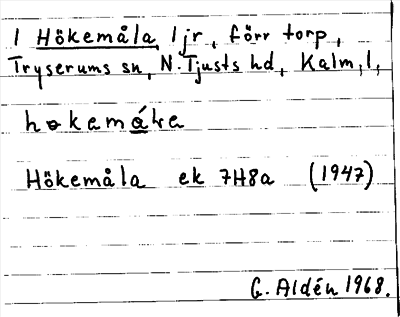 1 Hökemåla, 1 jr, förr torp,
Tryserums sn, N. Tjusts hd, Kalm. l.
Hökemåla ek 7H8a (1947)
G. Aldén 1968.